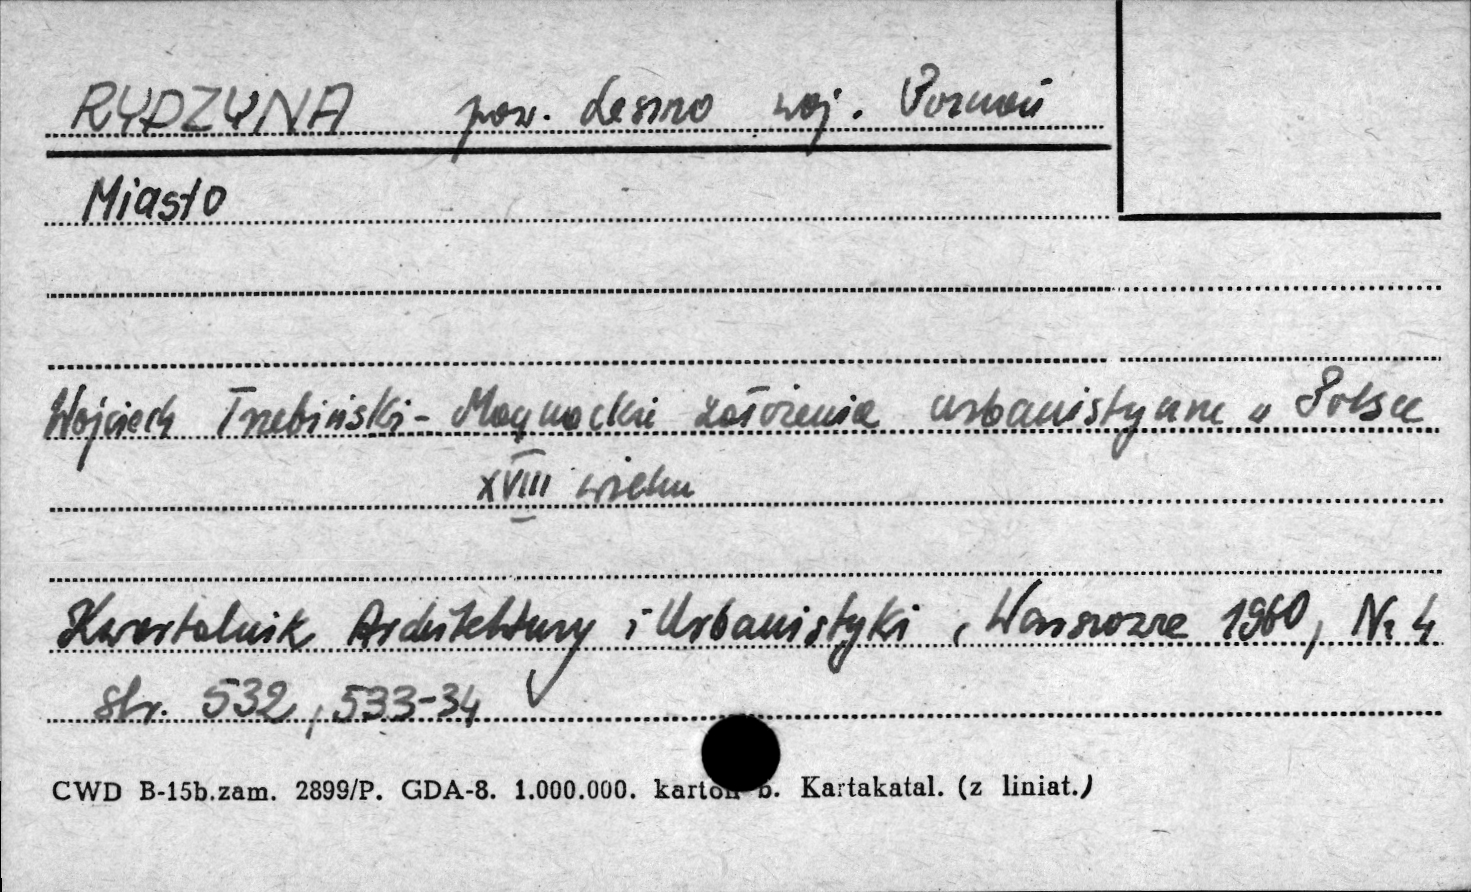 RYDZYNA pow. Leszno woj. Poznań
Miasto
Wojciech Trzebiński - Magnackie założenia urbanistyczne w Polsce
XVIII wieku
Kwartalnik Architektury i Urbanistyki, Warszawa 1960, Nr 4
str. 532, 533-34
CWD B-15b.zam. 2899/P. GDA-8. 1.000.000. karton b. Kartakatal. (z liniat.)